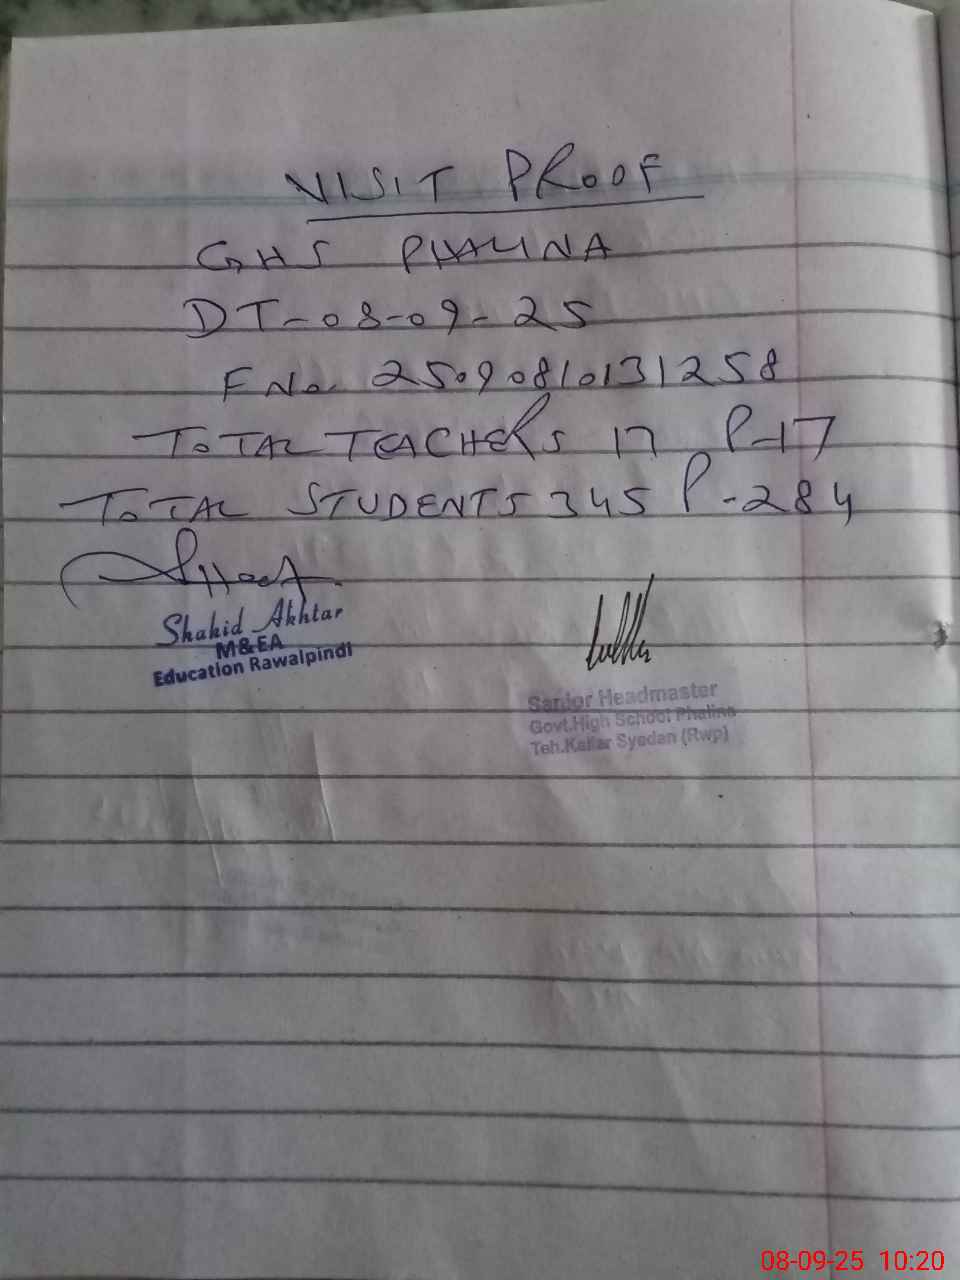 VISIT PROOF
GHS PHALINA
DT-08-09-25
F No. 2509081013125８
TOTAL TEACHERS 17 P-17
TOTAL STUDENTS 345 P-284
Shahid Akhtar
M&EA
Education Rawalpindi
Senior Headmaster
Govt.High School Phalina
Teh.Kallar Syedan (Rwp)
08-09-25 10:20